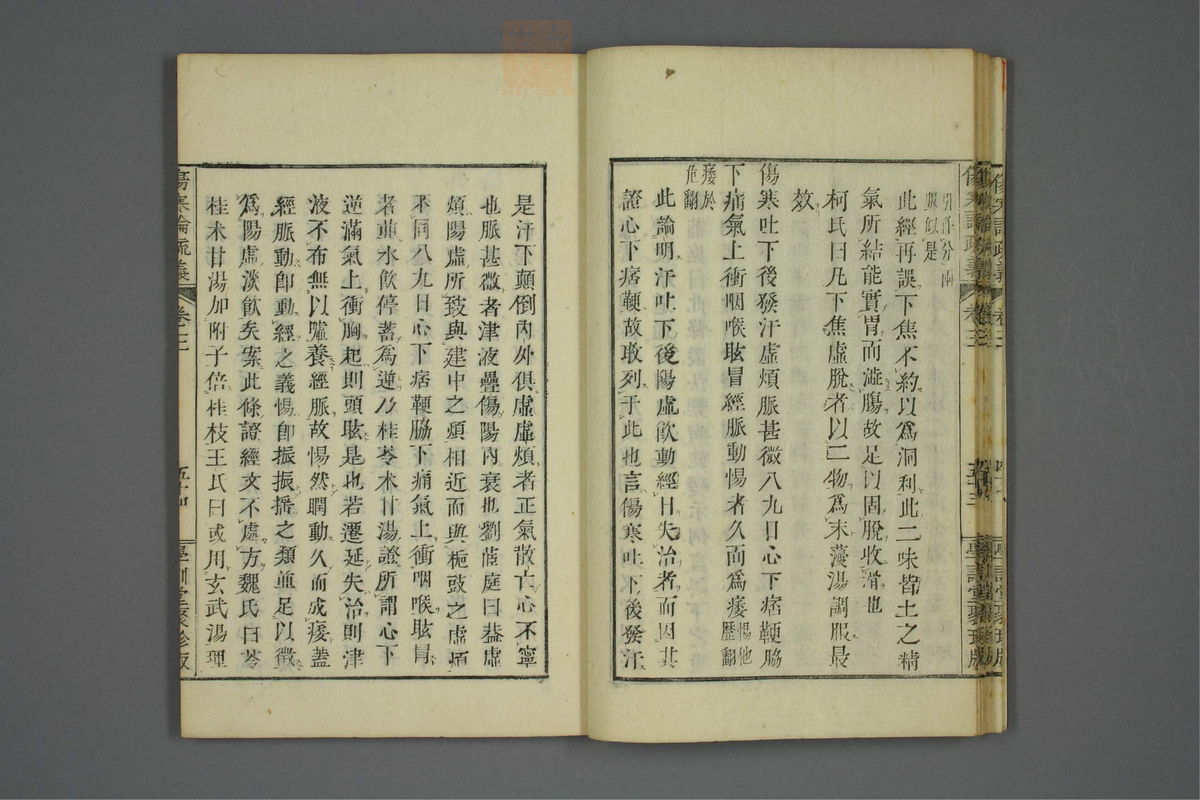 別作分兩
服似是
此經再誤下焦不約以爲洞利此二味皆土之精
氣所結能實胃而澁腸故足以固脫收滑也
柯氏曰凡下焦虛脫者以二物爲末薓湯調服最
效
傷寒吐下後發汗虛煩脈甚微八九日心下痞鞕脇
下痛氣上衝咽喉眩冒經脈動惕者久而爲痿惕他歷翻
痿於危翻
此論明汗吐下後陽虛飮動經日失治者而因其
證心下痞鞕故敢列于此也言傷寒吐下後發汗
傷寒論疏義
卷三
學訓堂聚珍版
是汗下顛倒內外俱虛虛煩者正氣散亡心不寧
也脈甚微者津液疊傷陽內衰也劉茝庭曰葢虛
煩陽虛所致與建中之煩相近而與梔豉之虛煩
不同八九日心下痞鞕脇下痛氣上衝咽喉眩冒
者並水飮停蓄爲逆乃桂苓朮甘湯證所謂心下
逆滿氣上衝胸起則頭眩是也若遷延失治則津
液不布無以噓養經脈故惕然瞤動久而成痿葢
經脈動卽動經之義惕卽振振搖之類並足以徵
爲陽虛淡飮矣案此條證經文不處方魏氏曰苓
桂朮甘湯加附子倍桂枝王氏曰或用玄武湯理
傷寒論疏義
卷三
五十四
學訓堂聚珍版